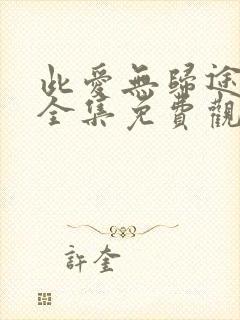 此愛無歸途
全集免費觀
許奎